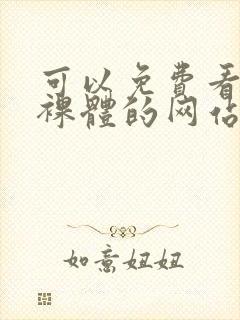 可以免費看
裸體的网佔
如意妞妞